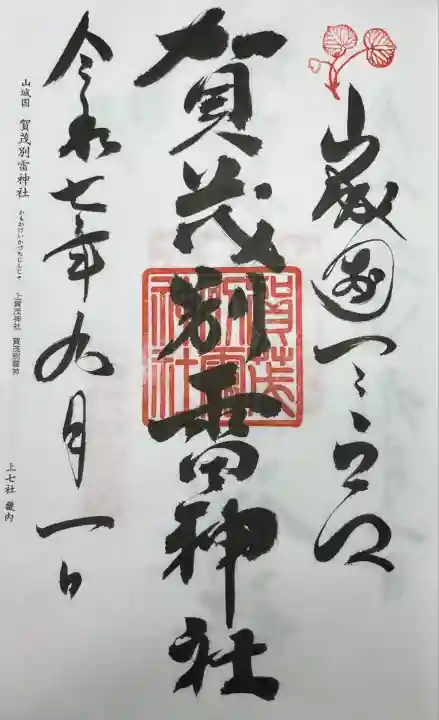 山城國一之宮
賀茂別雷神社
賀茂別雷神社
令和七年九月一日
山城国 賀茂別雷神社 かもわけいかづちじんじゃ 上賀茂神社 賀茂別雷神
上七社 畿内